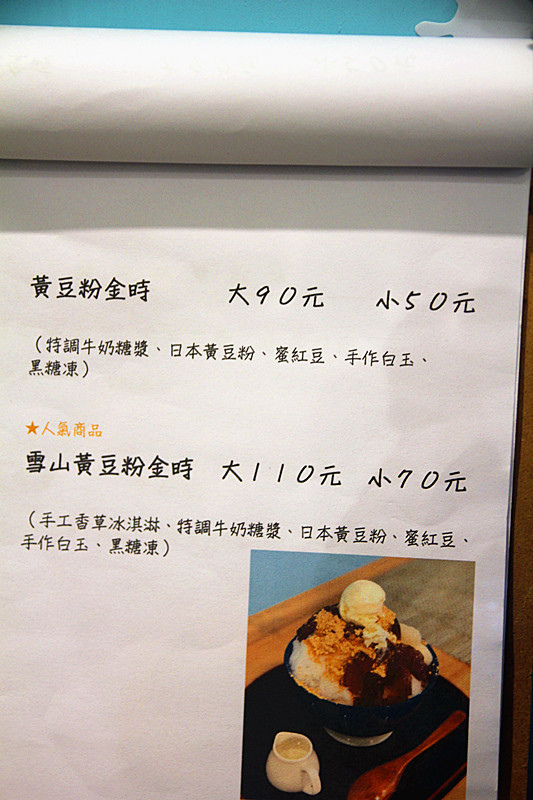 黃豆粉金時 大90元 小50元
（特調牛奶糖漿、日本黃豆粉、蜜紅豆、手作白玉、
黑糖凍）
★人氣商品
雪山黃豆粉金時 大110元 小70元
（手工香草冰淇淋、特調牛奶糖漿、日本黃豆粉、蜜紅豆、
手作白玉、黑糖凍）